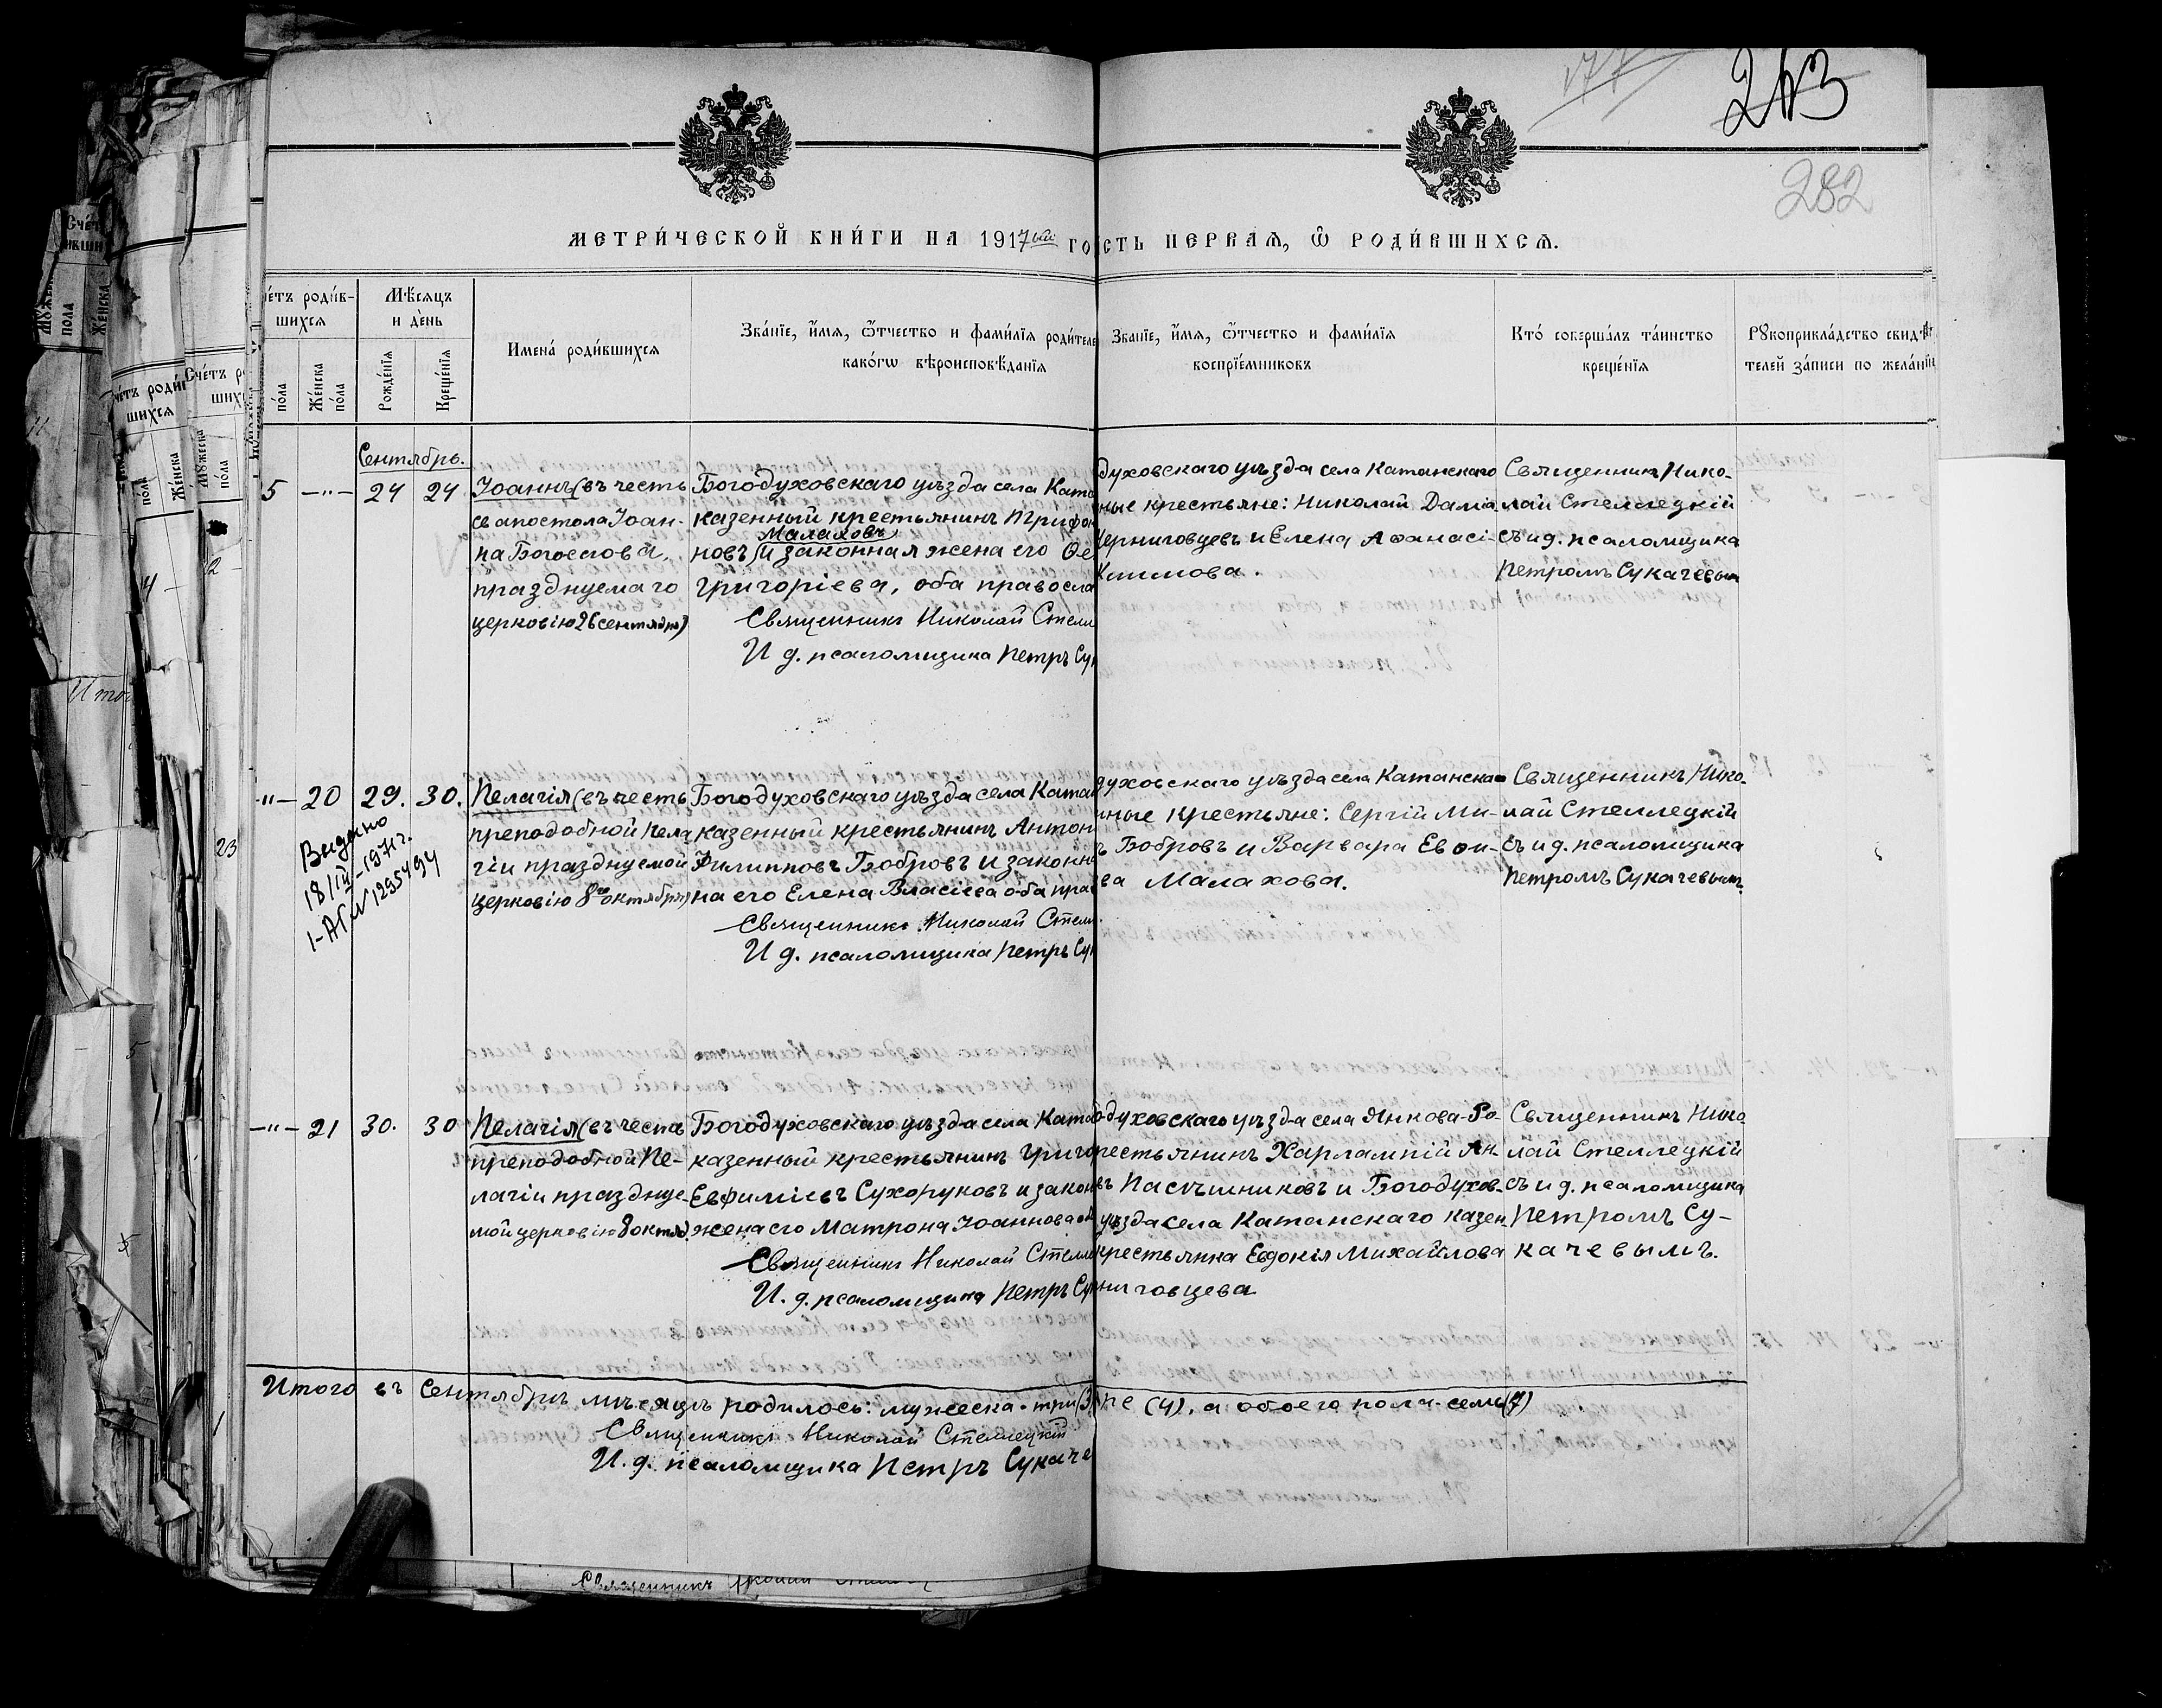 243
282
МЕТРИ́ЧЕСКОЙ КНИ́ГИ НА 1917ый ГО
СТЬ ПЕРВАѦ, Ѡ РОДИ́ВШИХСѦ.
е́тъ роди́в-
шихсѧ
Мѣ́сѧцъ
и де́нь
по́ла
Же́нска
по́ла
Рожде́нїѧ
Креще́нїѧ
Имена̀ роди́вшихсѧ
Зва́нїе, и҆́мѧ, ѻ҆́тчество и фами́лїѧ роди́теле
како́гѡ вѣроисповѣ́данїѧ
Зва́нїе, и҆́мѧ, ѻ҆́тчество и фами́лїѧ
воспрїе́мниковъ
Кто́ соверша́лъ та́инство
креще́нїѧ
Рꙋкоприкла́дство свидѣ́-
телей за́писи по жела́нїю
Сентябрь.
5 —"— 24 24.
Іоаннъ (въ честь
св апостола Іоан-
на Богослова,
празднуемаго
церковію 26 сентября)
Богодуховскаго уѣзда села Ката
казенный крестьянинъ Трифон
Малаховъ
новъ и законная жена его Ѳе
Григоріева, оба правосла
Священникъ Николай Стелл
И д. псаломщика Петръ Су
духовскаго уѣзда села Катанскаго
ные крестьяне: Николай Даміа
Черниговцевъ и Елена Аѳанасі-
Климова.
Священникъ Нико-
лай Стеллецкій
съ и д. псаломщика
Петромъ Сукачевым
"— 20 29. 30.
Видано
18/IV-1971 г.
I-АГ№ 1295494
Пелагія (въ честь
преподобной Пела
гіи празднуемой
церковію 8го октября)
Богодуховскаго уѣзда села Ката
казенный крестьянинъ Антон
Филипповъ Бобровъ и законн
на его Елена Власіева оба пра
Священникъ Николай Стелл
И д. псаломщика Петръ Су
духовскаго уѣзда села Катанска
ные крестьяне: Сергій Ми-
ъ Бобровъ и Варвара Евѳи-
ва Малахова.
Священникъ Нико-
лай Стеллецкій
съ и д. псаломщика
Петромъ Сукачевымъ.
—"— 21 30. 30
Пелагія (въ честь
преподобной Пе-
лагіи празднуе-
мой церковію 8 октяб)
Богодуховскаго уѣзда села Ката
казенный крестьянинъ Григо
Евфиміевъ Сухоруковъ и закон
жена его Матрона Іоаннова об
Священникъ Николай Стелле
И. д. псаломщика Петръ Су
одуховскаго уѣзда села Янкова-Ро-
рестьянинъ Харлампій Ан
въ Пасѣшниковъ и Богодухов-
уѣзда села Катанскаго казен
крестьянка Евдокія Михайлова
ниговцева
Священникъ Нико
лай Стеллецкій
съ и д. псаломщика
Петромъ Су-
качевымъ.
Итого въ Сентябрѣ мѣсяцѣ родилось: мужеска-три (3)
не (4), а обоего пола-семь (7)
Священникъ Николай Стеллецкій
И. д. псаломщика Петръ Сукаче